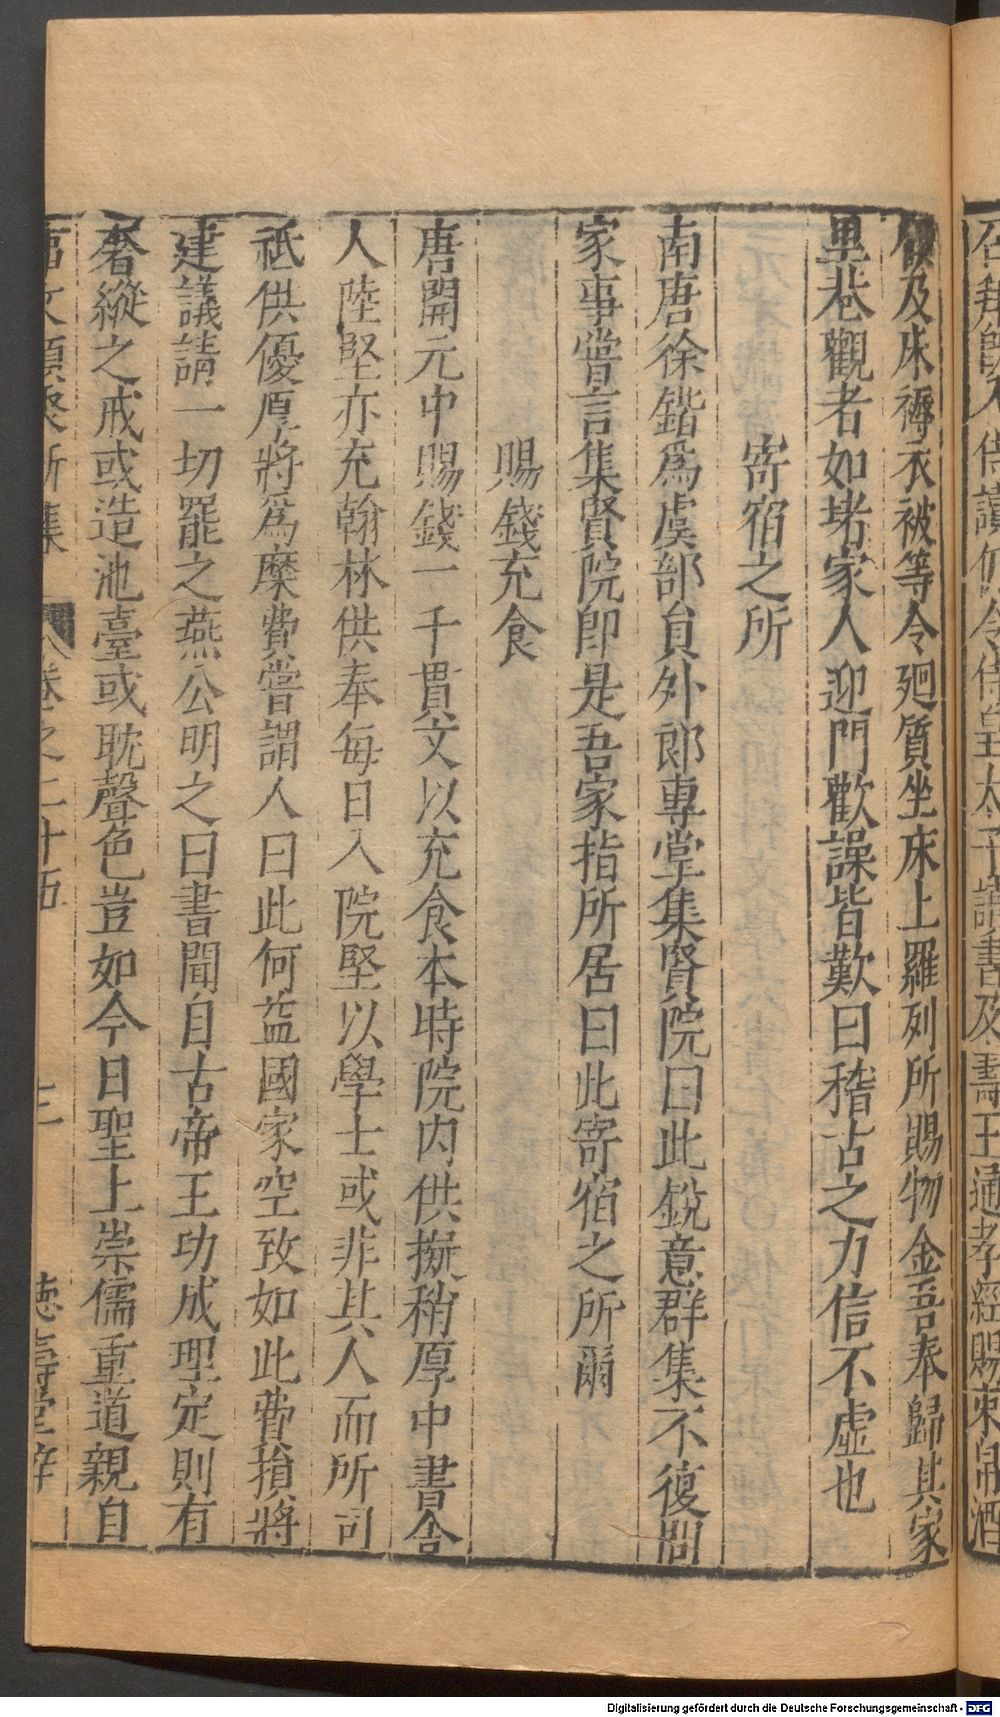 召拜舍人侍讀仍令侍皇太子讀書及壽王通孝經賜束帛酒
飲及床褥衣被等令廻質坐床上羅列所賜物金吾奉歸其家
里巷觀者如堵家人迎門歡譟皆歎曰稽古之力信不虛也
寄宿之所
南唐徐鍇爲虞部負外郎專掌集賢院曰此銳意群集不復問
家事嘗言集賢院卽是吾家指所居曰此寄宿之所爾
賜錢充食
唐開元中賜錢一千貫文以充食本時院內供擬稍厚中書舍
人陸堅亦充翰林供奉每日入院堅以學士或非其人而所司
祗供優厚將爲糜費嘗謂人曰此何益國家空致如此費損將
建議請一切罷之燕公明之曰書聞自古帝王功成理定則有
奢縱之戒或造池臺或耽聲色豈如今日聖上崇儒重道親自
冨文類聚新集 卷之二十五 三 德壽堂梓
Digitalisierung gefördert durch die Deutsche Forschungsgemeinschaft - DFG